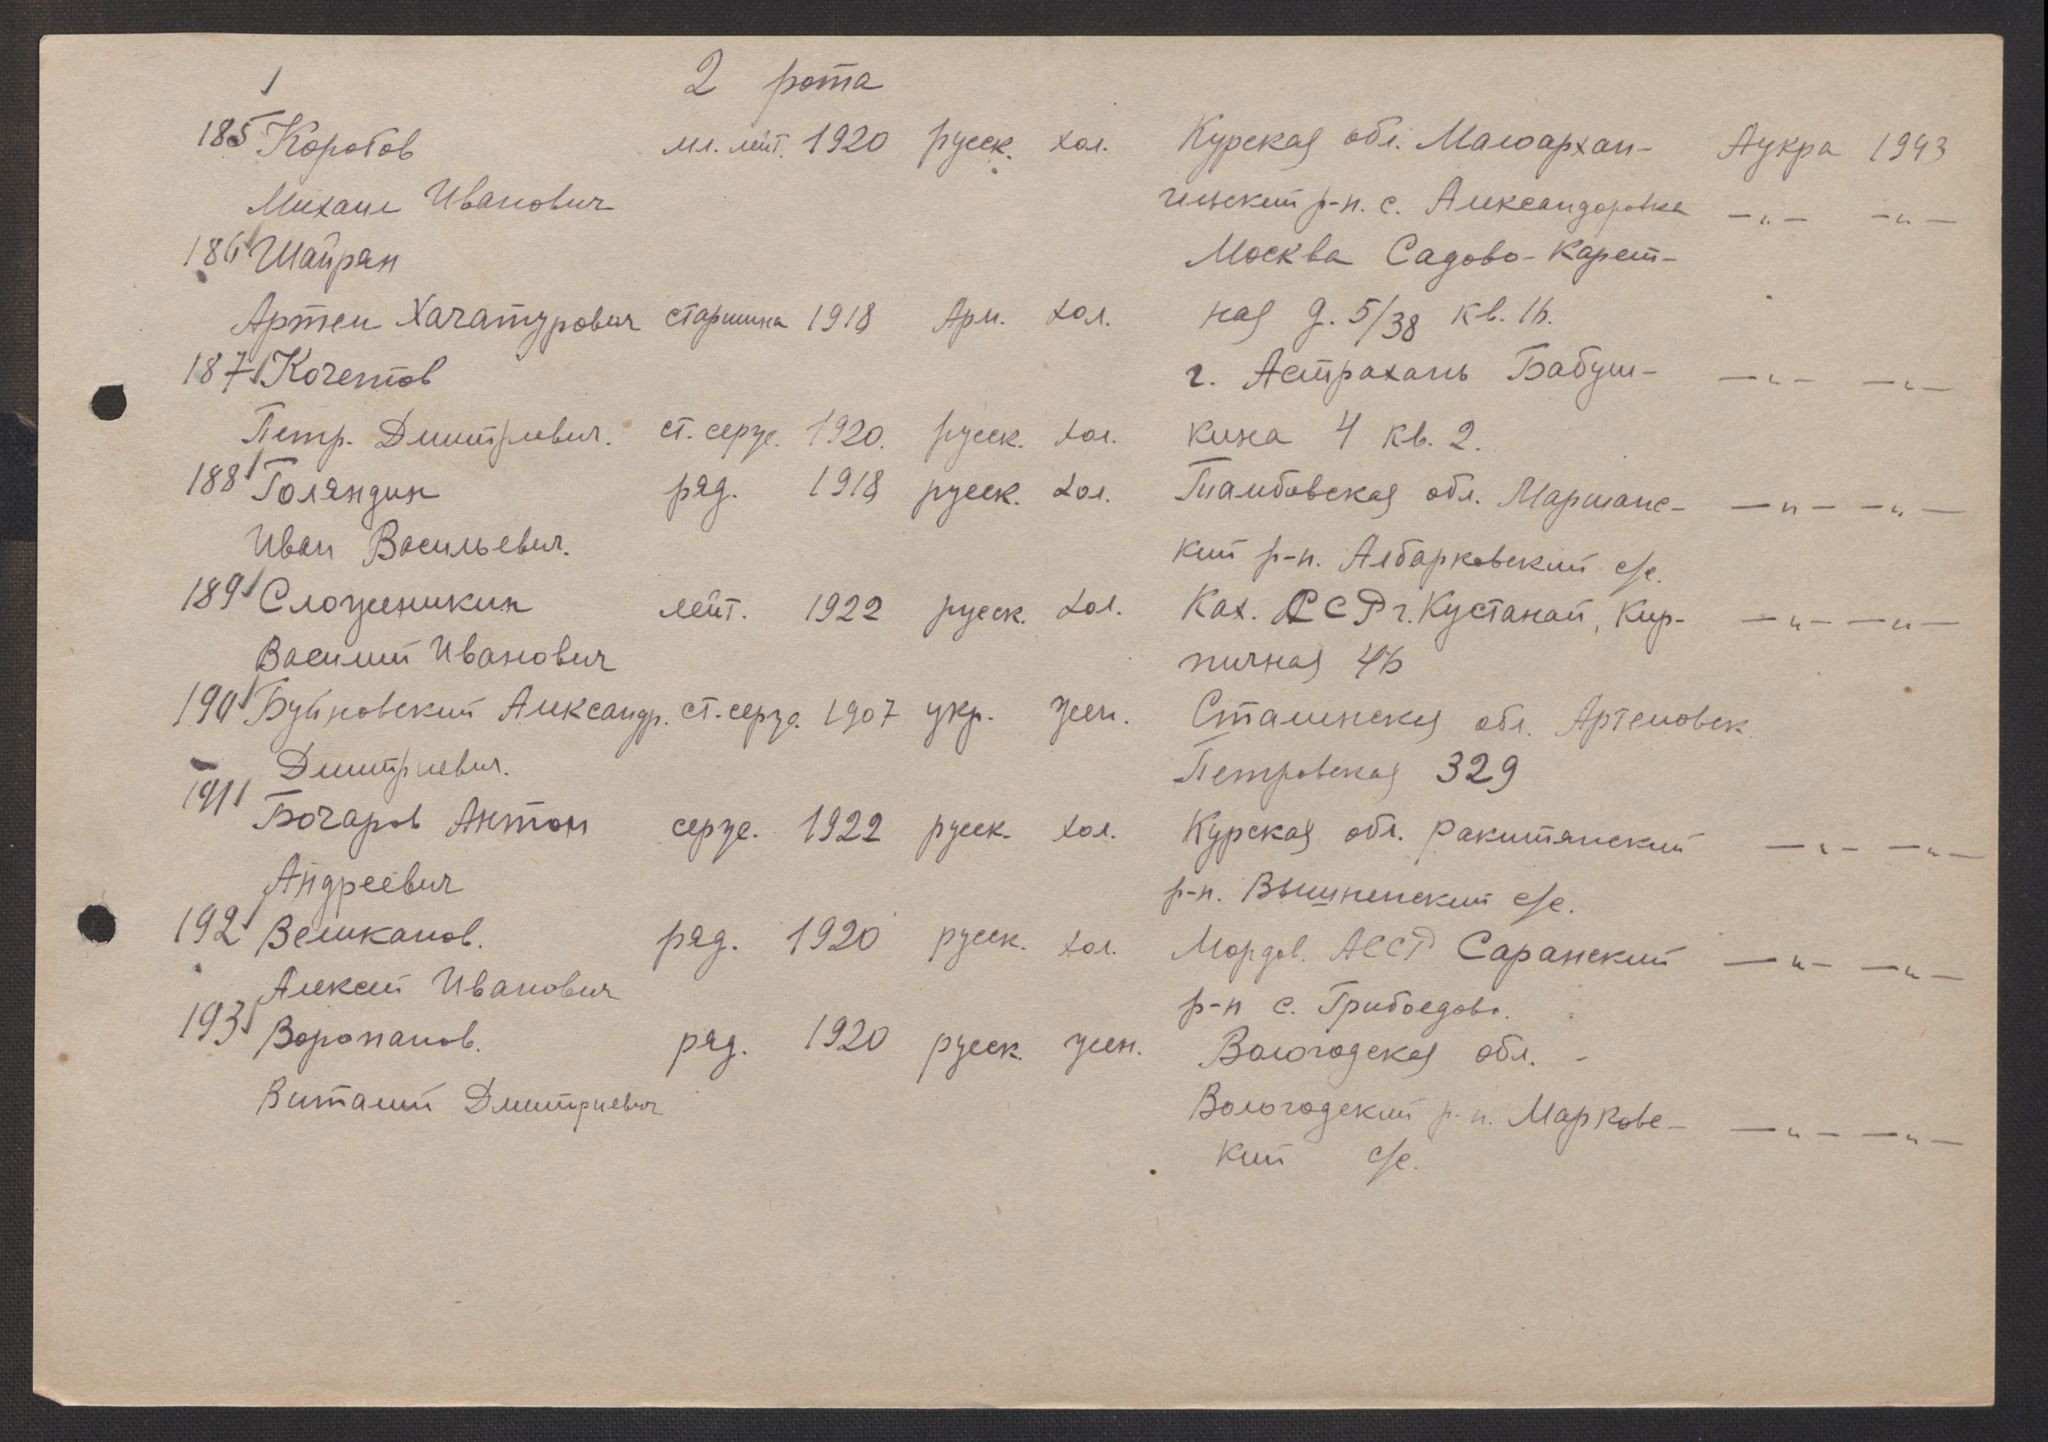 2 рота
185 Коротов мл. лейт. 1920 русск. хол. Курская обл. Малоархан- Аукра 1943
Михаил Иванович гельский р-н. с. Александровка —„— —„—
186 Шайрян Москва Садово-Карет-
Артем Хачатурович старшина 1918 Арм. хол. ная д. 5/38 кв. 16.
187 Кочетов г. Астрахань Бабуш- —„— —„—
Петр. Дмитриевич. ст. серж. 1920. русск. хол. кина 4 кв. 2.
188 Голяндин ряд. 1918 русск. хол. Тамбовская обл. Маршанс- —„— —„—
Иван Васильевич. кий р-н. Албарковский с/с.
189 Служеникин лейт. 1922 русск. хол. Каз. ССР г. Кустанай, Кир-  —„— —„—
Василий Иванович пичная 46
190 Буйновский Александр. ст. серж. 1907 укр. жен. Сталинская обл. Артемовск
Дмитриевич. Петровская 329
191 Бочаров Антон серж. 1922 русск. хол. Курская обл. Ракитянский —„— —„—
Андреевич р-н. Вышненский с/с.
192 Великанов. ряд. 1920 русск. хол. Мордов. АССР Саранский —„— —„—
Алексей Иванович р-н с. Грибоедово.
193 Воропанов. ряд. 1920 русск. жен. Вологодская обл. -
Виталий Дмитриевич Вологодский р-н. Марковс- —„— —„—
кий с/с.